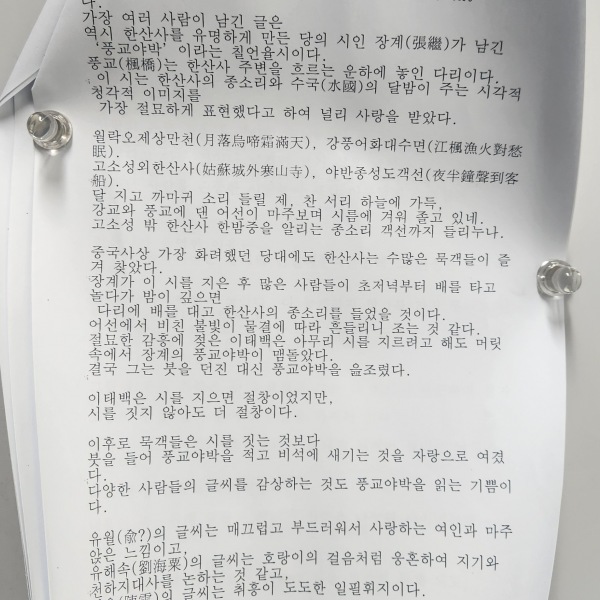 다.
가장 여러 사람이 남긴 글은
역시 한산사를 유명하게 만든 당의 시인 장계(張繼)가 남긴
'풍교야박' 이라는 칠언율시이다.
풍교(楓橋)는 한산사 주변을 흐르는 운하에 놓인 다리이다.
이 시는 한산사의 종소리와 수국(水國)의 달밤이 주는 시각적
청각적 이미지를
가장 절묘하게 표현했다고 하여 널리 사랑을 받았다.
월락오제상만천(月落烏啼霜滿天), 강풍어화대수면(江楓漁火對愁
眠).
고소성외한산사(姑蘇城外寒山寺), 야반종성도객선(夜半鐘聲到客
船).
달 지고 까마귀 소리 들릴 제, 찬 서리 하늘에 가득,
강교와 풍교에 댄 어선이 마주보며 시름에 겨워 졸고 있네.
고소성 밖 한산사 한밤중을 알리는 종소리 객선까지 들리누나.
중국사상 가장 화려했던 당대에도 한산사는 수많은 묵객들이 즐
겨 찾았다.
장계가 이 시를 지은 후 많은 사람들이 초저녁부터 배를 타고
놀다가 밤이 깊으면
다리에 배를 대고 한산사의 종소리를 들었을 것이다.
어선에서 비친 불빛이 물결에 따라 흔들리니 조는 것 같다.
절묘한 감흥에 젖은 이태백은 아무리 시를 지르려고 해도 머릿
속에서 장계의 풍교야박이 맴돌았다.
결국 그는 붓을 던진 대신 풍교야박을 읊조렸다.
이태백은 시를 지으면 절창이었지만,
시를 짓지 않아도 더 절창이다.
이후로 묵객들은 시를 짓는 것보다
붓을 들어 풍교야박을 적고 비석에 새기는 것을 자랑으로 여겼
다.
다양한 사람들의 글씨를 감상하는 것도 풍교야박을 읽는 기쁨이
다.
유월(兪?)의 글씨는 매끄럽고 부드러워서 사랑하는 여인과 마주
앉은 느낌이고,
유해속(劉海粟)의 글씨는 호랑이의 걸음처럼 웅혼하여 지기와
천하지대사를 논하는 것 같고,
글씨는 취흥이 도도한 일필휘지이다.